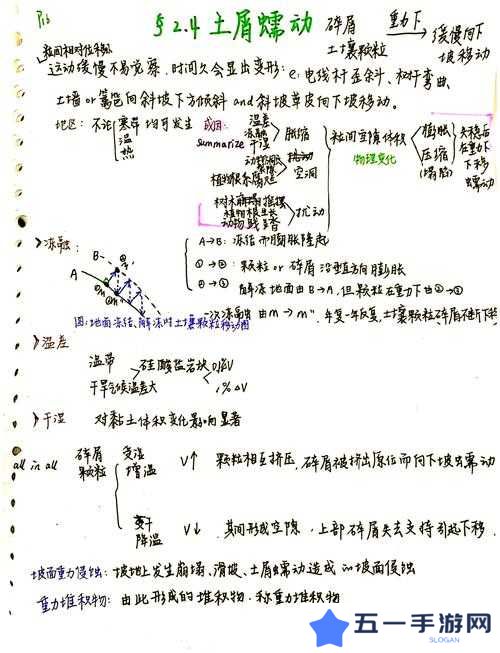 P15
§2.4 土屑蠕动 碎屑 土壤颗粒 重力下 缓慢向下坡移动
粒间相对位移
运动缓慢不易觉察,时间久会显出变形:e:电线杆歪斜、树干弯曲、
土墙or篱笆向斜坡下方倾斜and斜坡草皮向下坡移动。
地区:不论寒 温 热 均可发生 成因:
summarize
温差
冻融
干湿
胀缩
植物根系腐烂
空洞
树木 摇摆
植物根生长
动物践踏
扰动
粒间空隙体积
物理变化
膨胀
压缩
(塌陷)
失稳后
在重力
下移
蠕动
>冻融:
A
B
A→B:冻结而膨胀隆起
①→②:颗粒or碎屑沿垂直方向膨胀
②→③ 解冻地面由B→A,但颗粒在重力下由②→③
一次冻融由m→m'',年复一年反复,土壤颗粒碎屑不断下移
图:地面冻结、解冻时土壤颗粒移动图
>温差
温带
干旱气候温差大
硅酸盐岩块
1%ΔV
>干湿 对黏土体积变化影响显著
all in all 碎屑 颗粒
受湿
增温
V↑ 颗粒相互挤压,碎屑被挤出原位而向下坡蠕动
变干
降温
V↓ 其间形成空隙,上部碎屑失去支持引起下移.
坡面重力侵蚀:坡地上发生崩塌、滑坡、土屑蠕动造成的坡面侵蚀
重力堆积物:由此形成的堆积物,称重力堆积物
五一手游网
SLOGAN